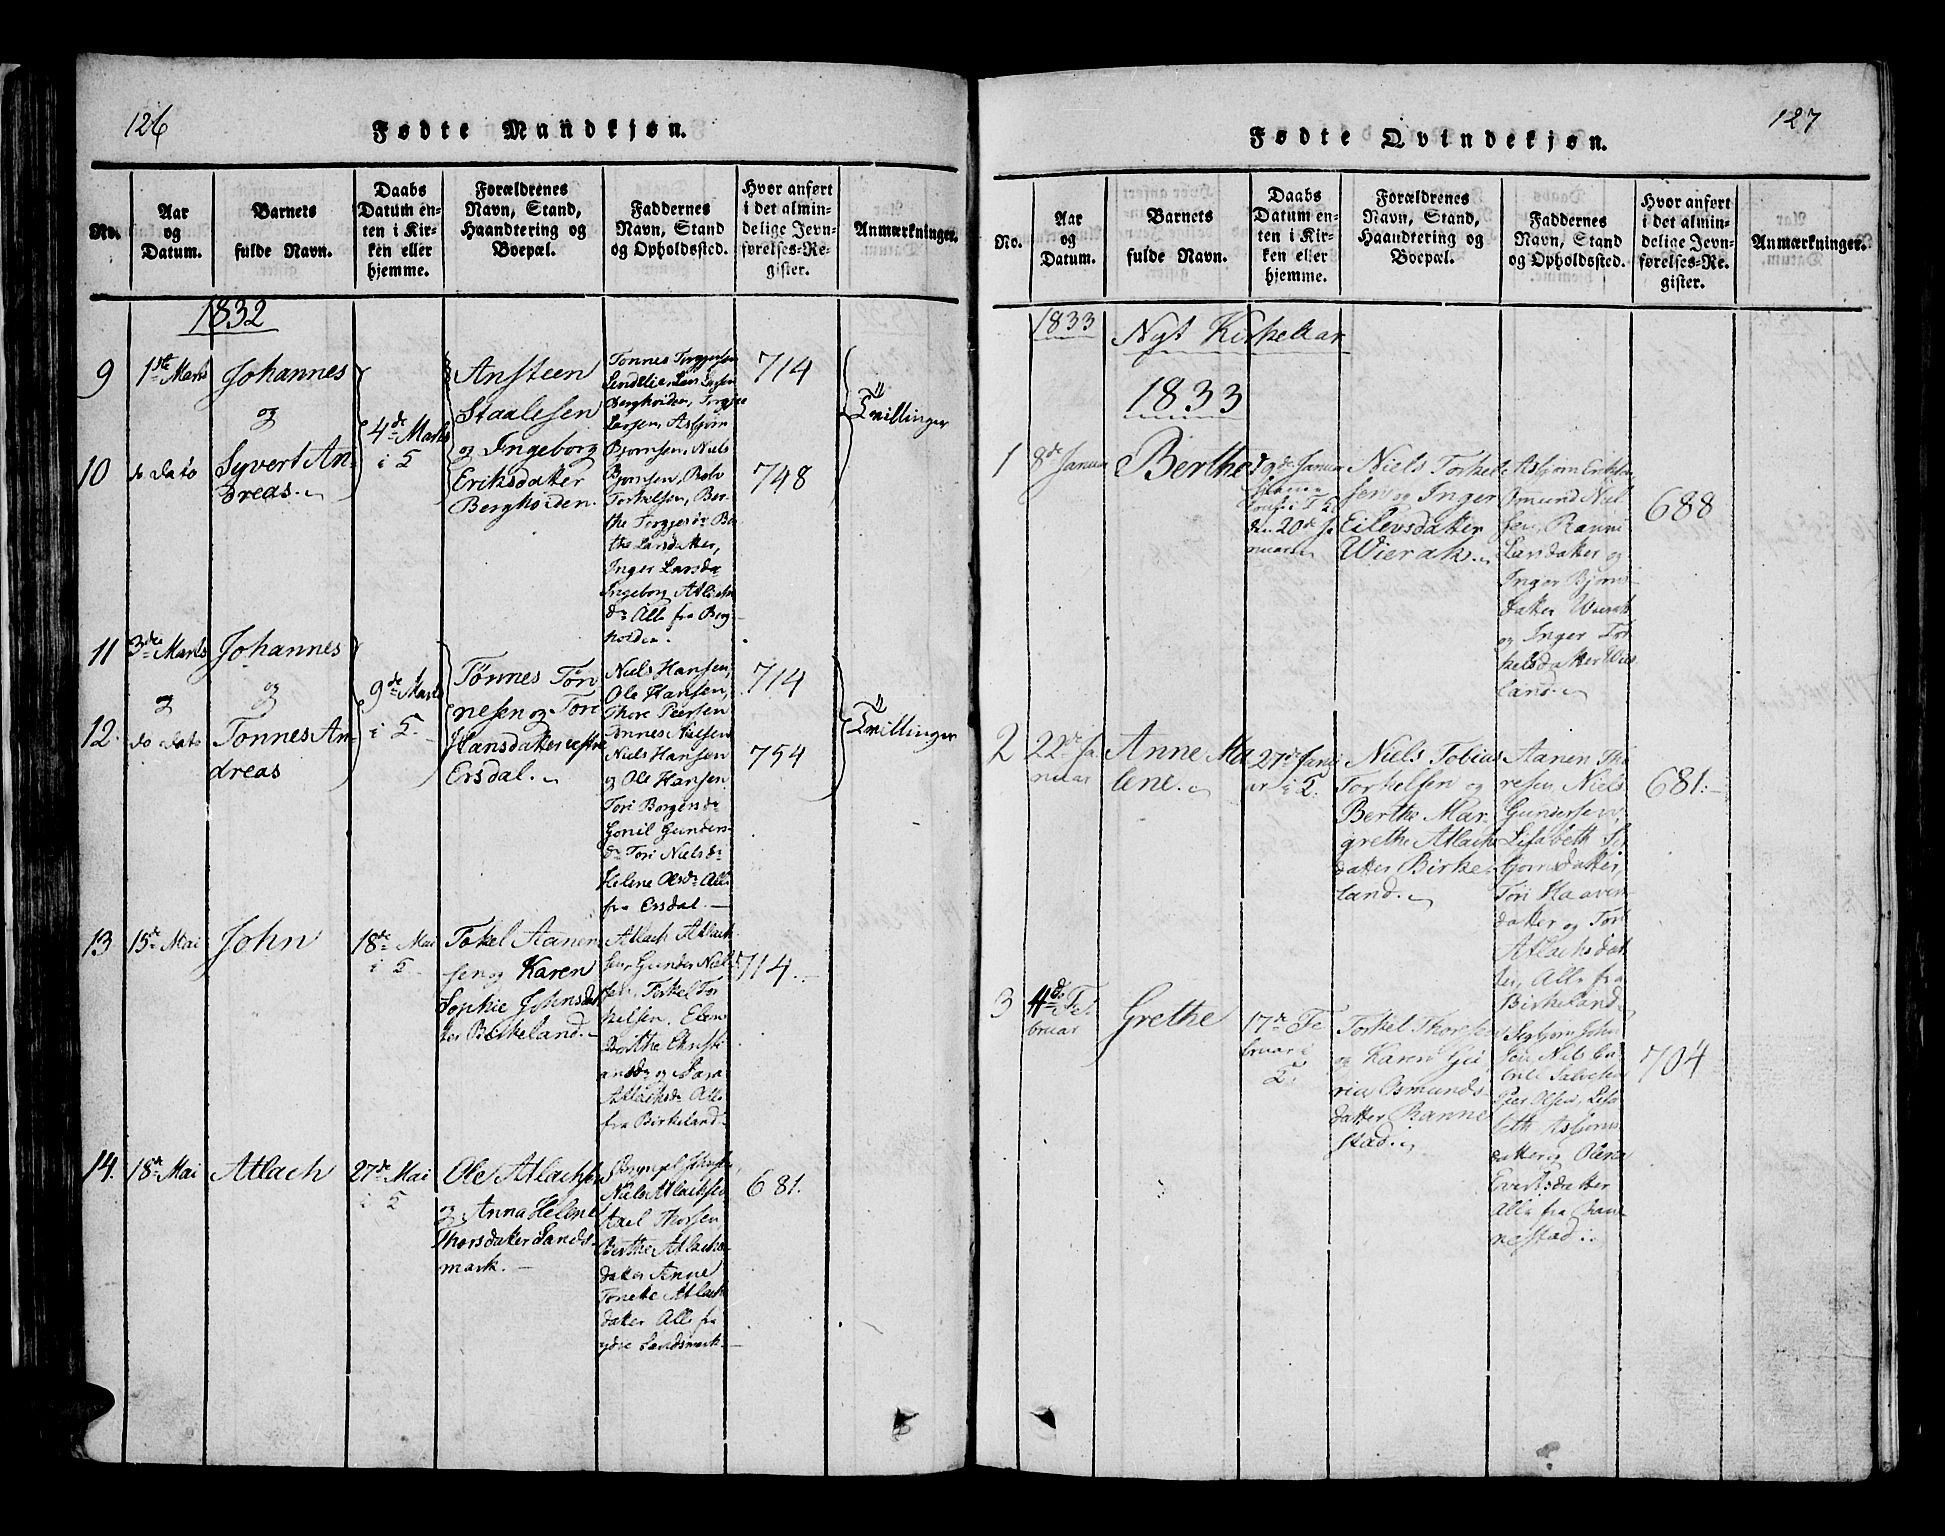 126
Fødte Mandkjøn.
No.
Aar
og
Datum.
Barnets
fulde Navn.
Daabs
Datum en-
ten i Kir-
ken eller
hjemme.
Forældrenes
Navn, Stand,
Haandtering og
Boepæl.
Faddernes
Navn, Stand
og Opholdssted.
Hvor anført
i det almin-
delige Jevn-
førelses-Re-
gister.
Anmærkninger.
1832
9
1ste Marts
Johannes
og
10
do Dato
Syvert An-
dreas.
4de Marts
i T
Ansteen
Staalesen
og Ingeborg
Eriksdatter
Berghoiden.
Tønnes Torgjersen
Lars Larsen
Berghoiden, Torgje
Larsen, Asbjørn
Bjørnsen, Niels
Bjørnsen,
Torkelsen, Ber-
the Torgjersdr Ber
the Larsdatter,
Inger Larsda
Ingeborg Atlachs
dr Alle fra Berg-
hoiden.
714
748
Tvillinger
11
3die Marts
Johannes
og
og
12.
do Dato
Tonnes An-
dreas
9de Marts
i T.
Tönnes Tön
nesen og Tore
Hansdatter vestre
Ersdal.
Niels Hansen,
Ole Hansen,
Thore Peersen
Tønnes Nielsen
Niels Hansen
og Ole Hansen.
Tori Borgensdr
Gonil Gunders-
dr Tori Nielsdr
Helene Olsdr Alle
fra Ersdal.
714
754
Tvillinger
13
15de Mai
John
18de Mai
i T
Tokel Aanen
sen og Karen
Sophie Johnsdat
ter Birkeland.
Atlach Atlach
sen, Gunder Niel
sen, Torkel Tor
kelsen, Elen
Dorthe Christi
ansdr og Sara
Atlachsdr Alle
fra Birkeland.
714.
14.
18de Mai
Atlach
27de Mai
i T
Ole Atlachsen
og Anna Helene
Thorsdatter Sands-
mark.
Niels Atlachsen
Axel Thorsen,
Berthe Atlachs-
datter Anne
Tonette Atlach
datter Alle fra
ydre Sandsmark.
681.
127
Fødte Qvindekjøn.
No.
Aar
og
Datum.
Barnets
fulde Navn.
Daabs
Datum en-
ten i Kir-
ken eller
hjemme.
Forældrenes
Navn, Stand,
Haandtering og
Boepæl.
Faddernes
Navn, Stand
og Opholdssted.
Hvor anført
i det almin-
delige Jevn-
førelses-Re-
gister.
Anmærkninger.
1833
Nyt Kirkeaar
1833
1
8de Januar
Berthe
d 9de Januar
hjemme
conf: i T
den 20de Ja
nuar
Niels Torkel
sen og Inger
Eilevsdatter
Wierak.
Asbjørn Eriksen
Osmund Niel
sen, Ranni
Larsdatter og
Inger Bjørns
datter Wierak
og Inger Tor
kelsdatter
land.
688
2
22de Ja
nuar
Anne Ma
lene.
27de Janu
ar i T.
Niels Tobias
Torkelsen og
Berthe Mar-
grethe Atlachs
datter Birke-
land.
Aanen Tho
resen, Niels
Gundersen,
Lisabeth Ser
bjørnsdatter,
Tori Haavers
datter og Tori
Atlachsdat
ter, Alle fra
Birkeland.
681.
3
4de Fe
bruar
Grethe
17de Fe
bruar i
T.
Torkel Thoresen
og Karen Gu
ria Osmunds-
datter Ranne
stad.
Serbjørn John
sen Niels Ga
briel Salvesen
Peer Olsen, Lisa
beth Asbjørns
datter og
Evertsdatter
Alle fra Ran
nestad.
704